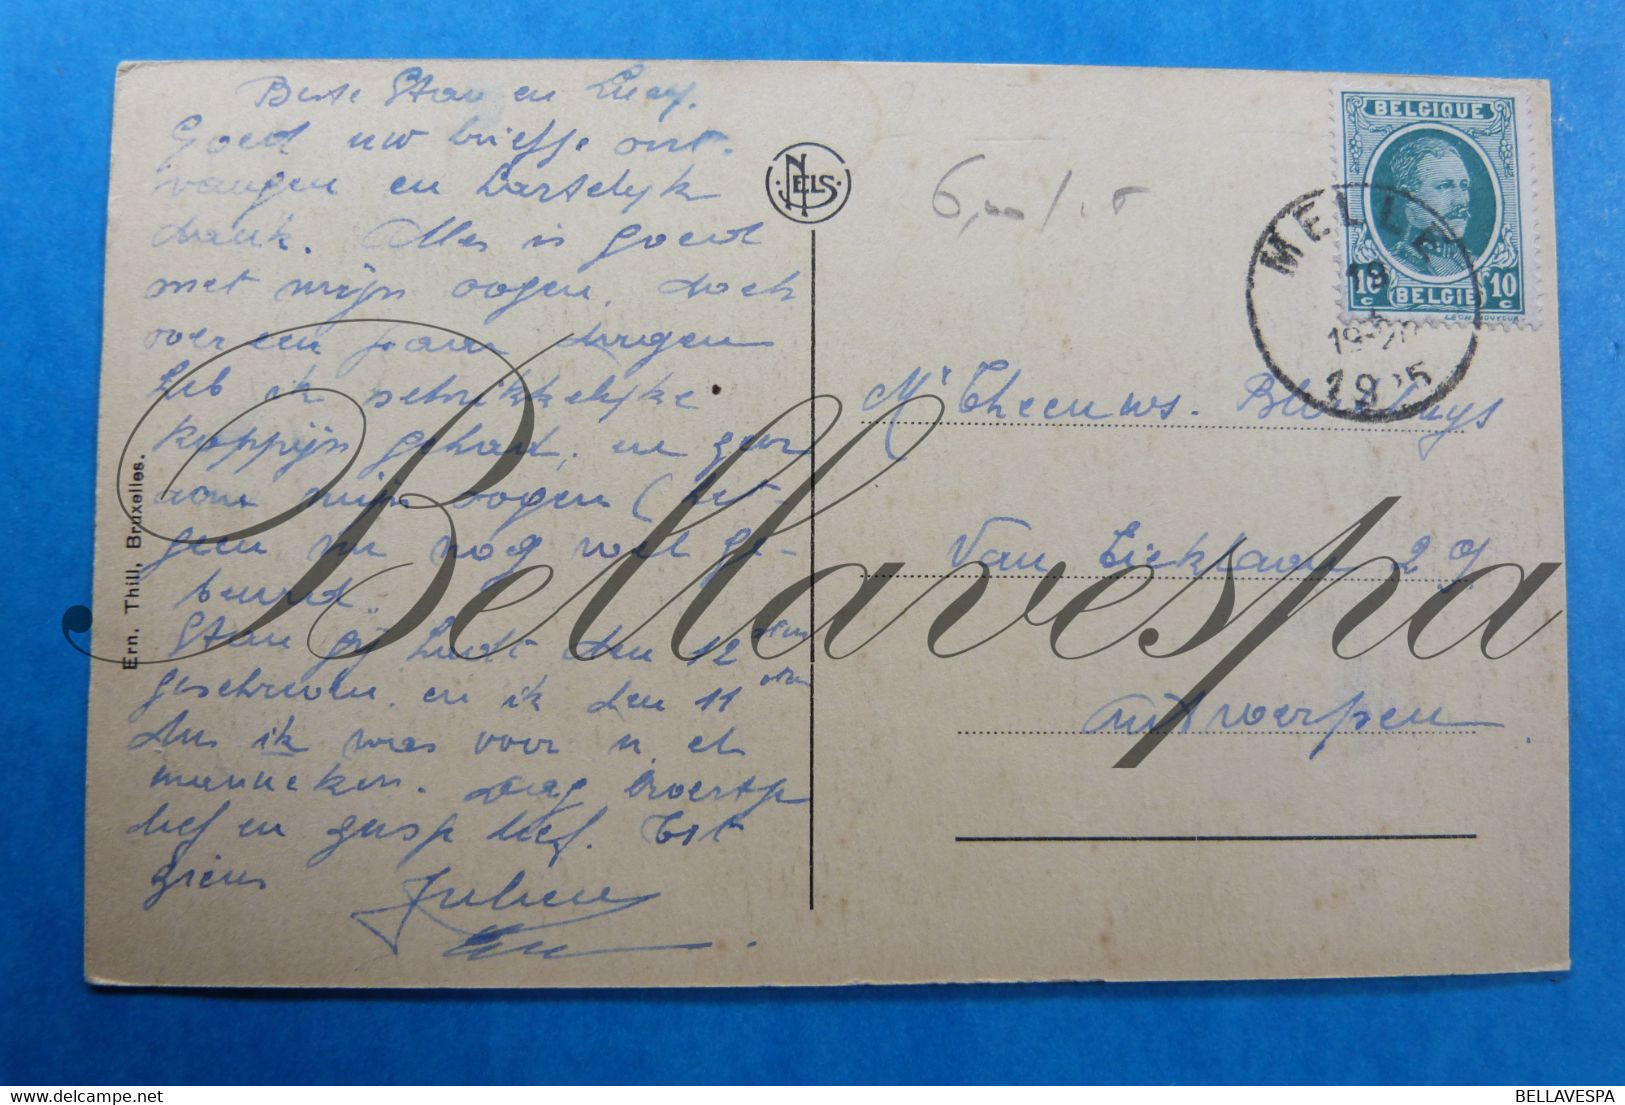 Beste Stan en Lucy.
Goed uw briefje ont-
vangen en hartelijk
dank. Alles is goed
met mijn oogen, doch
over een paar dagen
heb ik schrikkelijke
koppijn gehad, en gans
rond mijn oogen (het-
geen nu nog wel ge-
beurd.
Stan gij hadt den 12den
geschreven en ik den 11den
dus ik was voor u, eh
manneken. Dag broertje
lief en zusje lief. Tot
ziens
Julien
NELS
Ern. Thill, Bruxelles.
6,00/
BELGIQUE
10 c BELGIË 10 c
MELLE
19
19-20
1925
Mr Theeuws.
Van Eicklaan 29
Antwerpen
Bellavespa
BELLAVESPA